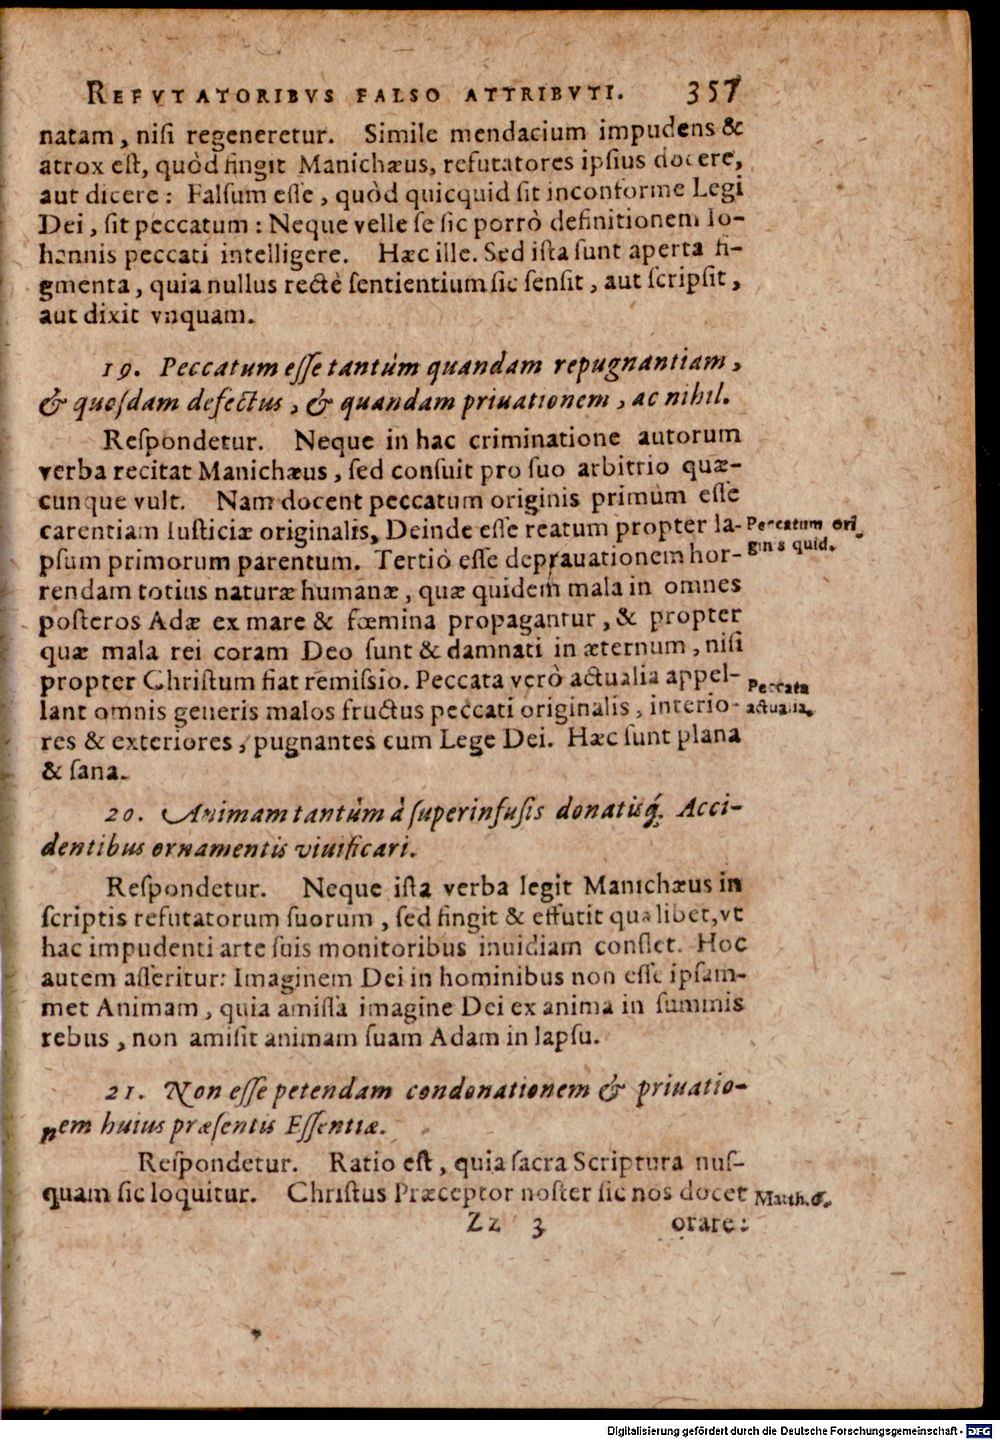 REFVTATORIBVS FALSO ATTRIBVTI. 357
natam, niſi regeneretur. Simile mendacium impudens &
atrox eſt, quòd fingit Manichæus, refutatores ipſius docere,
aut dicere: Falſum eſſe, quòd quicquid ſit inconforme Legi
Dei, ſit peccatum: Neque velle ſe ſic porrò definitionem Io-
hannis peccati intelligere. Hæc ille. Sed iſta ſunt aperta fi-
gmenta, quia nullus rectè ſentientium ſic ſenſit, aut ſcripſit,
aut dixit vnquam.
19. Peccatum eſſe tantùm quandam repugnantiam,
& quoſdam defectus, & quandam priuationem, ac nihil.
Reſpondetur. Neque in hac criminatione autorum
verba recitat Manichæus, ſed conſuit pro ſuo arbitrio quæ-
cunque vult. Nam docent peccatum originis primùm eſſe
carentiam Iuſticiæ originalis, Deinde eſſe reatum propter la-
Peccatum ori
pſum primorum parentum. Tertiò eſſe deprauationem hor-
ginis quid.
rendam totius naturæ humanæ, quæ quidem mala in omnes
poſteros Adæ ex mare & fœmina propagantur, & propter
quæ mala rei coram Deo ſunt & damnati in æternum, niſi
propter Chriſtum fiat remiſsio. Peccata verò actualia appel-
Peccata
lant omnis generis malos fructus peccati originalis, interio-
actualia.
res & exteriores, pugnantes cum Lege Dei. Hæc ſunt plana
& ſana.
20. Animam tantùm à ſuperinfuſis donatisq́; Acci-
dentibus ornamentis viuificari.
Reſpondetur. Neque iſta verba legit Manichæus in
ſcriptis refutatorum ſuorum, ſed fingit & effutit qualibet, vt
hac impudenti arte ſuis monitoribus inuidiam conflet. Hoc
autem aſſeritur: Imaginem Dei in hominibus non eſſe ipſam-
met Animam, quia amiſſa imagine Dei ex anima in ſummis
rebus, non amiſit animam ſuam Adam in lapſu.
21. Non eſſe petendam condonationem & priuatio-
nem huius præſentis Eſſentiæ.
Reſpondetur. Ratio eſt, quia ſacra Scriptura nuſ-
quam ſic loquitur. Chriſtus Præceptor noſter ſic nos docet
Matth. 6.
Zz 3 orare:
Digitalisierung gefördert durch die Deutsche Forschungsgemeinschaft - DFG